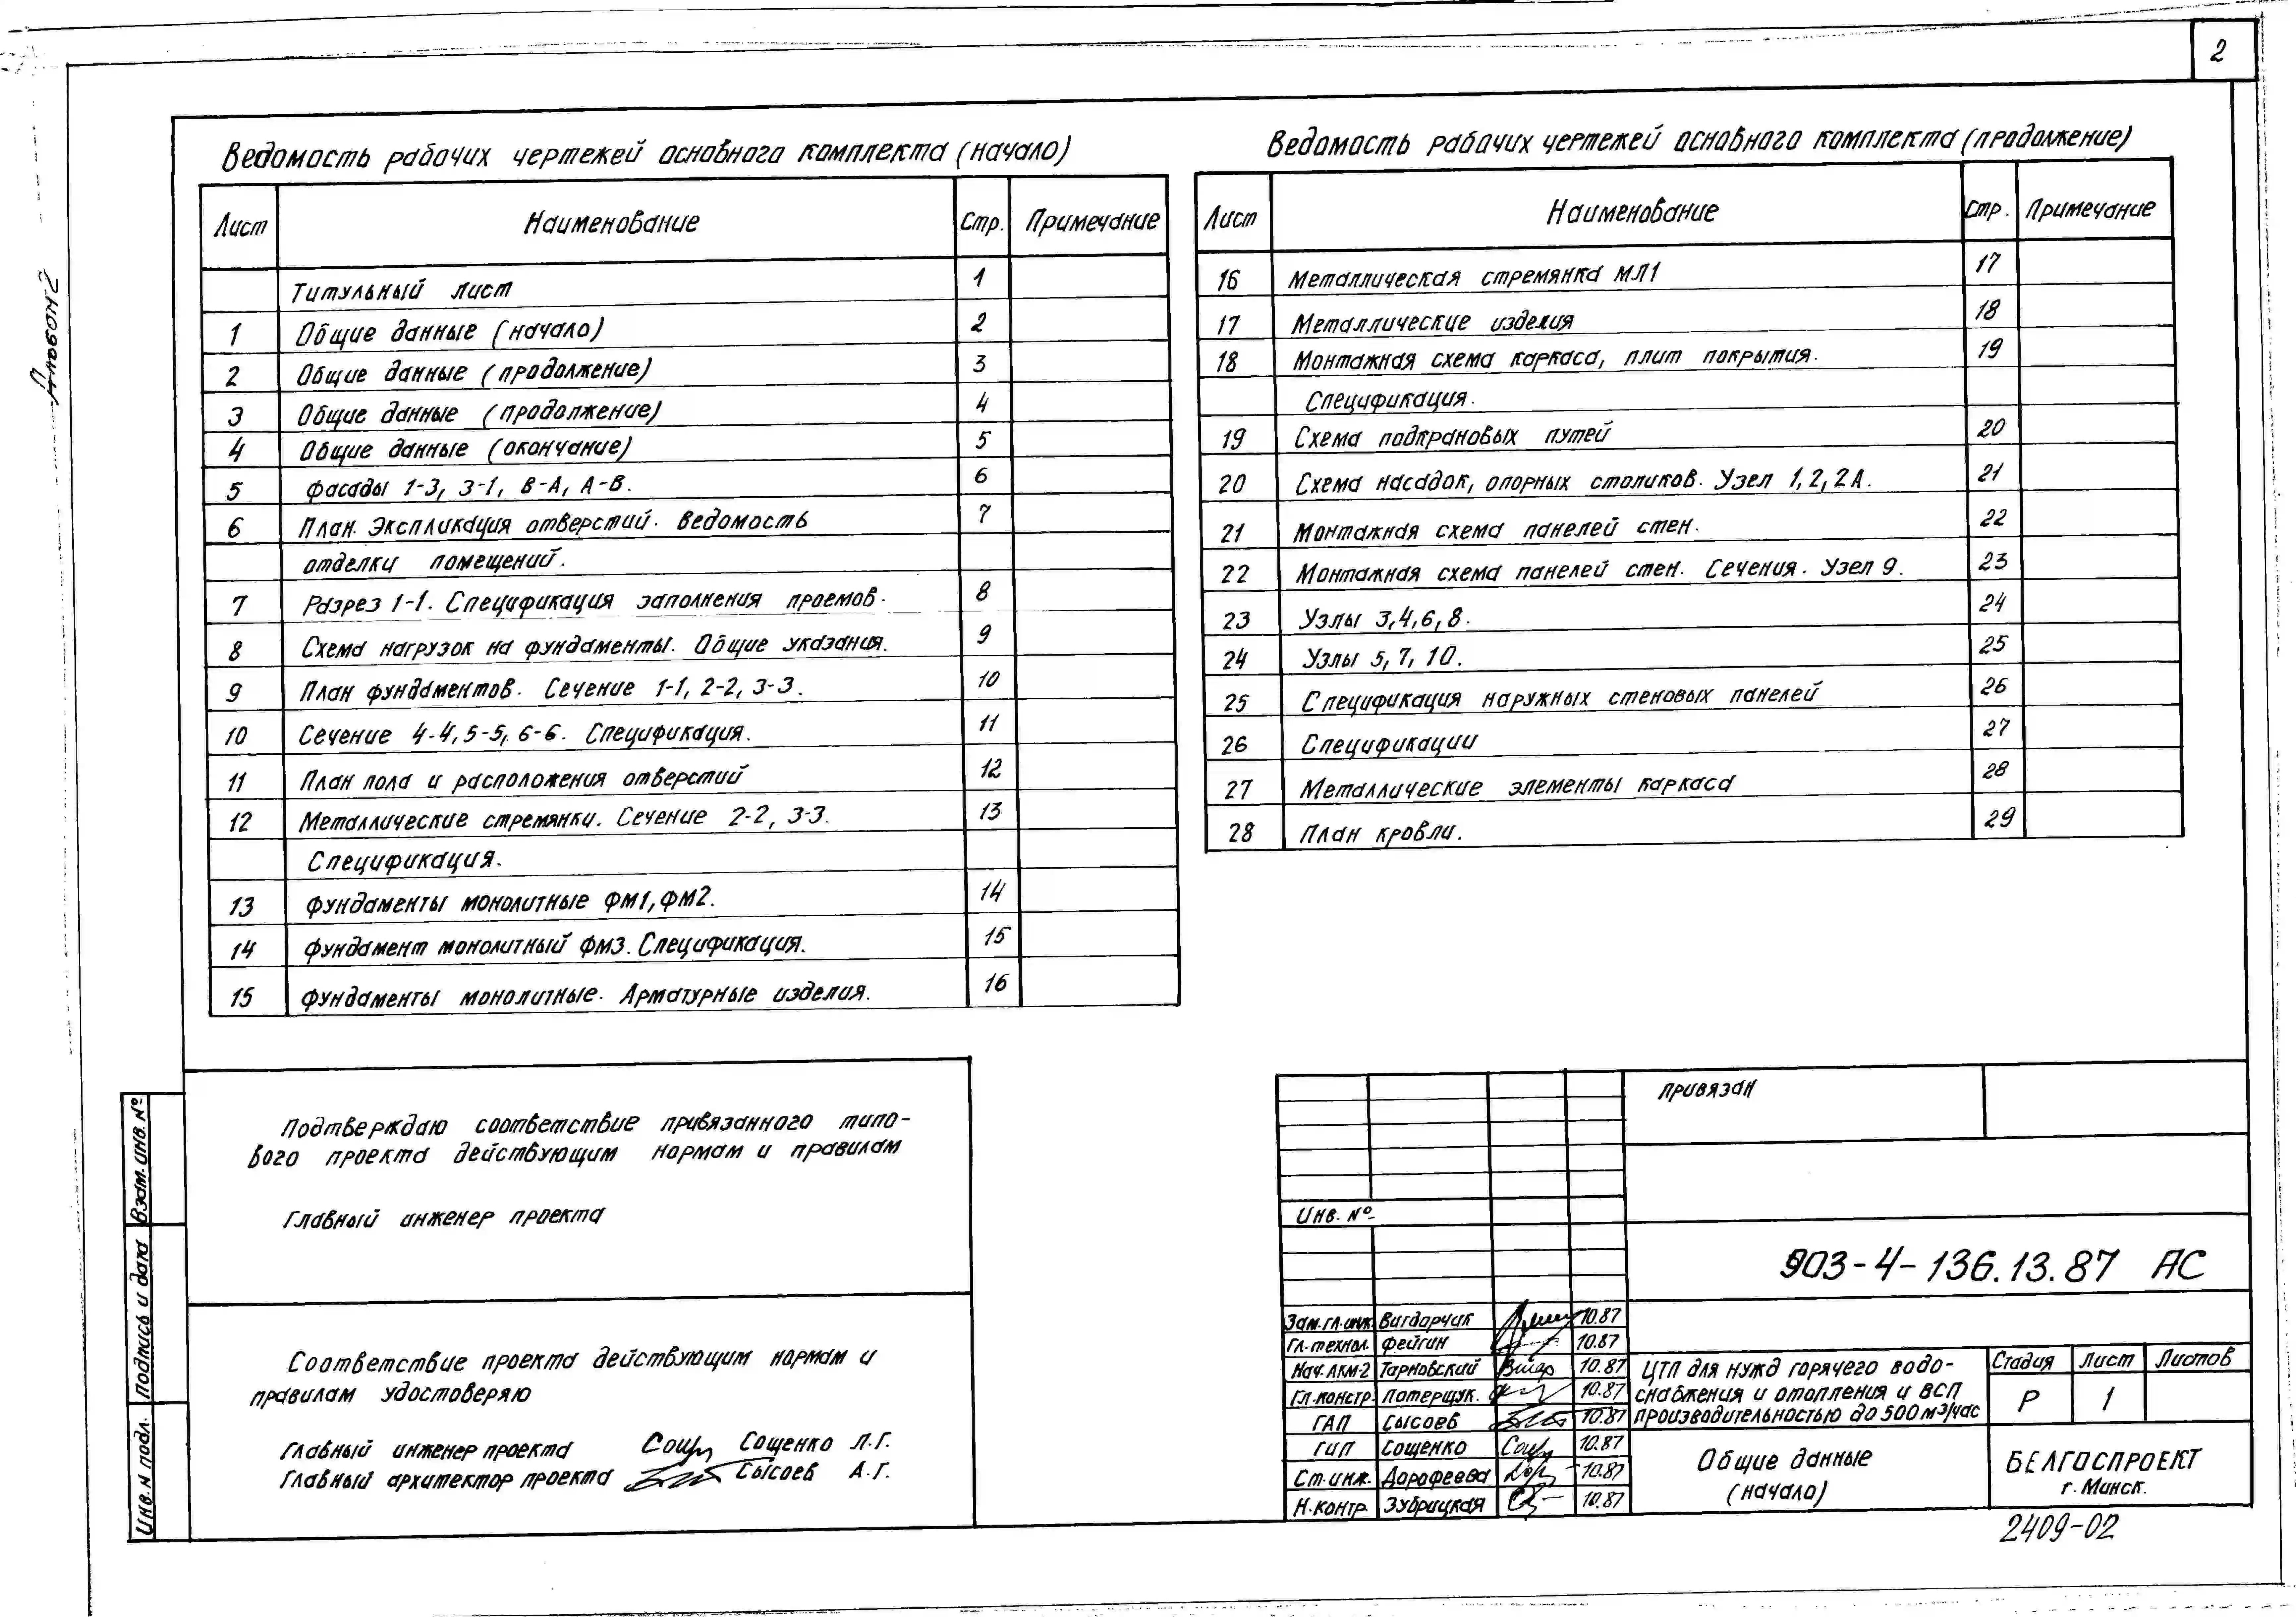 2
Ведомость рабочих чертежей основного комплекта (начало)
Лист Наименование Стр. Примечание
Титульный лист 1
1 Общие данные (начало) 2
2 Общие данные (продолжение) 3
3 Общие данные (продолжение) 4
4 Общие данные (окончание) 5
5 Фасады 1-3, 3-1, В-А, А-В. 6
6 План. Экспликация отверстий. Ведомость 7
отделки помещений.
7 Разрез 1-1. Спецификация заполнения проемов. 8
8 Схема нагрузок на фундаменты. Общие указания. 9
9 План фундаментов. Сечение 1-1, 2-2, 3-3. 10
10 Сечение 4-4, 5-5, 6-6. Спецификация. 11
11 План пола и расположения отверстий 12
12 Металлические стремянки. Сечение 2-2, 3-3. 13
Спецификация.
13 Фундаменты монолитные ФМ1, ФМ2. 14
14 Фундамент монолитный ФМ3. Спецификация. 15
15 Фундаменты монолитные. Арматурные изделия. 16
Ведомость рабочих чертежей основного комплекта (продолжение)
Лист Наименование Стр. Примечание
16 Металлическая стремянка МЛ1 17
17 Металлические изделия 18
18 Монтажная схема каркаса, плит покрытия. 19
Спецификация.
19 Схема подкрановых путей 20
20 Схема насадок, опорных столиков. Узел 1, 2, 2А. 21
21 Монтажная схема панелей стен. 22
22 Монтажная схема панелей стен. Сечения. Узел 9. 23
23 Узлы 3, 4, 6, 8. 24
24 Узлы 5, 7, 10. 25
25 Спецификация наружных стеновых панелей 26
26 Спецификации 27
27 Металлические элементы каркаса 28
28 План кровли. 29
Подтверждаю соответствие привязанного типо-
вого проекта действующим нормам и правилам
Главный инженер проекта
Соответствие проекта действующим нормам и
правилам удостоверяю
Главный инженер проекта Сощенко Л.Г.
Главный архитектор проекта Сысоев А.Г.
Взам. инв. №
Подпись и дата
Инв. № подл.
Привязан
Инв. №
903-4-136.13.87 АС
Зам. гл. инж. Вигдарчик 10.87
Гл. технол. Фейгин 10.87
Нач. АКМ-2 Тарновский 10.87
Гл. констр. Потерщук. 10.87
ГАП Сысоев 10.87
ГИП Сощенко 10.87
Ст. инж. Дорофеева 10.87
Н. контр. Зубрицкая 10.87
ЦТП для нужд горячего водо-
снабжения и отопления и ВСП
производительностью до 500 м³/час
Стадия Лист Листов
Р 1
Общие данные
(начало)
БЕЛГОСПРОЕКТ
г. Минск.
2409-02